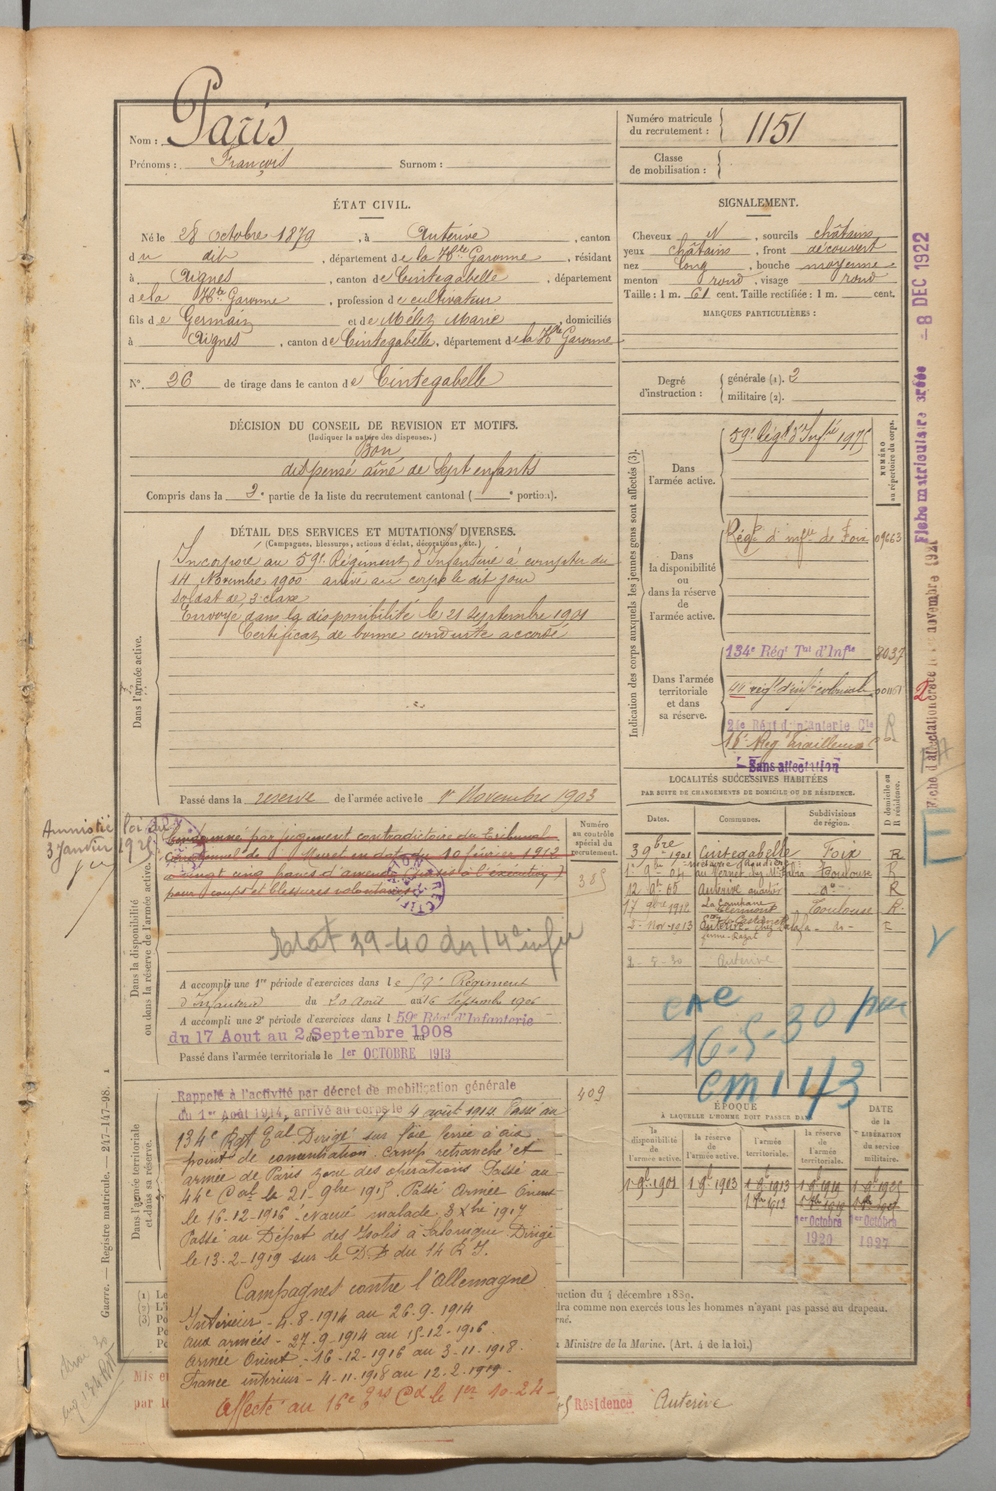 Nom : Paris
Prénoms : François Surnom :
Numéro matricule du recrutement : 1151
Classe de mobilisation :
ÉTAT CIVIL.
Né le 28 octobre 1879, à Auterive, canton
du dit, département de la Hte Garonne, résidant
à Aignes, canton de Cintegabelle, département
de la Hte Garonne, profession de cultivateur
fils de Germain et de Mélet Marie, domiciliés
à Aignes, canton de Cintegabelle, département de la Hte Garonne
N° 26 de tirage dans le canton de Cintegabelle
SIGNALEMENT.
Cheveux N, sourcils châtains
yeux châtains, front découvert
nez long, bouche moyenne
menton rond, visage rond
Taille : 1 m. 61 cent. Taille rectifiée : 1 m. cent.
MARQUES PARTICULIÈRES :
Degré d'instruction : générale (1). 2
militaire (2).
DÉCISION DU CONSEIL DE REVISION ET MOTIFS.
(Indiquer la nature des dispenses.)
Bon
dispensé aîné de sept enfants
Compris dans la 2e partie de la liste du recrutement cantonal ( e portion).
DÉTAIL DES SERVICES ET MUTATIONS DIVERSES.
(Campagnes, blessures, actions d'éclat, décorations, etc.)
Dans l'armée active.
Incorporé au 59e Régiment d'Infanterie à compter du
14 Novembre 1900 arrivé au corps le dit jour
Soldat de 2e classe
Envoyé dans la disponibilité le 21 Septembre 1901
Certificat de bonne conduite accordé
Passé dans la réserve de l'armée active le 1er Novembre 1903
Indication des corps auxquels les jeunes gens sont affectés (3).
NUMÉRO au répertoire du corps.
Dans l'armée active.
59e Régt d'Infrie 1975
Dans la disponibilité ou dans la réserve de l'armée active.
Régt d'infie de Foix 09663
Dans l'armée territoriale et dans sa réserve.
134e Régt Tal d'Infie 8037
44 régt d'infie coloniale
24e Régt d'Infanterie Cle
16e Reg Tirailleurs
Sans affectation
Amnistié loi du
3 Janvier 1925
Dans la disponibilité ou dans la réserve de l'armée active.
Condamné par jugement contradictoire du Tribunal
correctionnel de Muret en date du 10 février 1912
à vingt cinq francs d'amende
pour coups et blessures volontaires
Numéro au contrôle spécial du recrutement.
385
A accompli une 1re période d'exercices dans le 59e Régiment
d'Infanterie du 20 Août au 16 Septembre 1906
A accompli une 2e période d'exercices dans le 59e Régt d'Infanterie
du 17 Aout au 2 Septembre 1908
Passé dans l'armée territoriale le 1er OCTOBRE 1913
LOCALITÉS SUCCESSIVES HABITÉES
PAR SUITE DE CHANGEMENTS DE DOMICILE OU DE RÉSIDENCE.
Dates. Communes. Subdivisions de région. D domicile ou R résidence.
3 9bre 1901 Cintegabelle Foix R
12 Auterive R
17 1912 Toulouse R
2 Nov 1913 Auterive
2-5-30 Auterive
16-5-30
cm 143
Dans l'armée territoriale et dans sa réserve.
Rappelé à l'activité par décret de mobilisation générale
du 1er Août 1914, arrivé au corps le 4 août 1914 Passé au
409
134e Rgt Tal Dirigé sur voie ferrée à dis
point de concentration. Camp retranché et
armée de Paris zone des opérations Passé au
44e Cal le 21-9bre 1915. Passé Armée Orient
le 16-12-1916. évacué malade 8 Xbre 1917
Passé au Dépôt des Isolés à Salonique Dirigé
le 13-2-1919 sur le D.D. du 14 R I.
Campagnes contre l'Allemagne
Intérieur - 4-8-1914 au 26-9-1914
aux armées - 27-9-1914 au 15-12-1916
armée Orient - 16-12-1916 au 3-11-1918
France intérieur - 4-11-1918 au 12-2-1919
Affecté au 16e Cal le 1er 10-24
ÉPOQUE
À LAQUELLE L'HOMME DOIT PASSER DANS
la disponibilité de l'armée active. la réserve de l'armée active. l'armée territoriale. la réserve de l'armée territoriale. DATE de la LIBÉRATION du service militaire.
1 9e 1901 1 9e 1903 1 9e 1913 1 9e 1919 1 9e 1925
1er Octobre 1920 1er Octobre 1927
Ministre de la Marine. (Art. 4 de la loi.)
Résidence Auterive
Guerre. — Registre matricule. — 247-147-98.
Fiche matriculaire créée — 8 DEC 1922